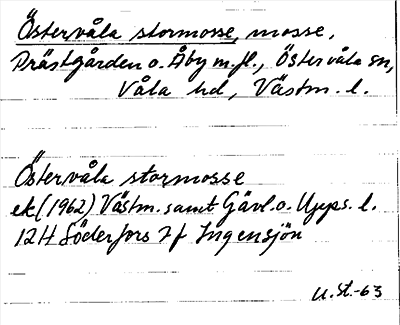 Östervåla stormosse, mosse,
Prästgården o. Åby m.fl., Östervåla sn,
Våla hd, Västm. l.
Östervåla stormosse
ek (1962) Västm. samt Gävl. o. Upps. l.
12H Söderfors 7f Ingensjön
U.St.-63